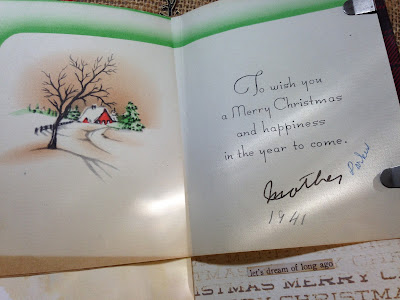 To wish you
a Merry Christmas
and happiness
in the year to come.
Mother
Parker
1941
let's dream of long ago
ISTMAS MERRY C
CHRISTMAS